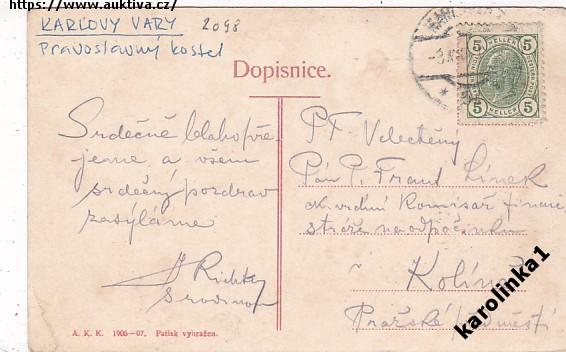 https://www.auktiva.cz/
KARLOVY VARY 2098
Pravoslavný kostel
Dopisnice.
5 HELLER 5
5 HELLER 5
Srdečně blahopře-
jeme a všem
srdečný pozdrav
zasýláme
Richter
s rodinou
P.T. Velectěný
Pán P. Frant
c.k. vrchní Komisař finanč
stráže na odpočinku
Kolín
Pražské předměstí
A. K. K. 1906-07. Patisk vyhražen.
karolinka1